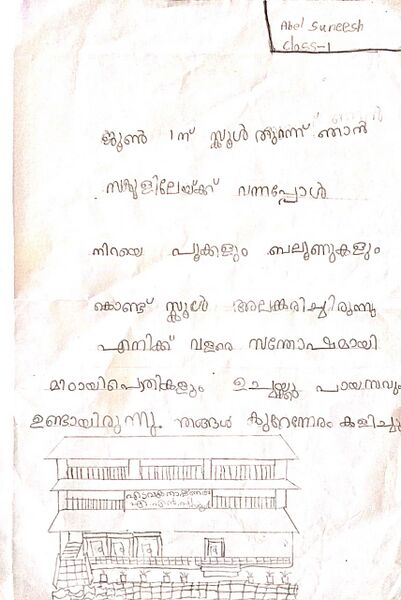 Abel Suneesh
Class-1
ജൂൺ 1ന് സ്കൂൾ തുറന്ന് ഞാൻ
സ്കൂളിലേയ്ക്ക് വന്നപ്പോൾ
നിറയെ പൂക്കളും ബലൂണുകളും
കൊണ്ട് സ്കൂൾ അലങ്കരിച്ചിരുന്നു
എനിക്ക് വളരെ സന്തോഷമായി
മിഠായിപൊതികളും ഉച്ചയ്ക്കു പായസവും
ഉണ്ടായിരുന്നു. ഞങ്ങൾ കുറേനേരം കളിച്ചു